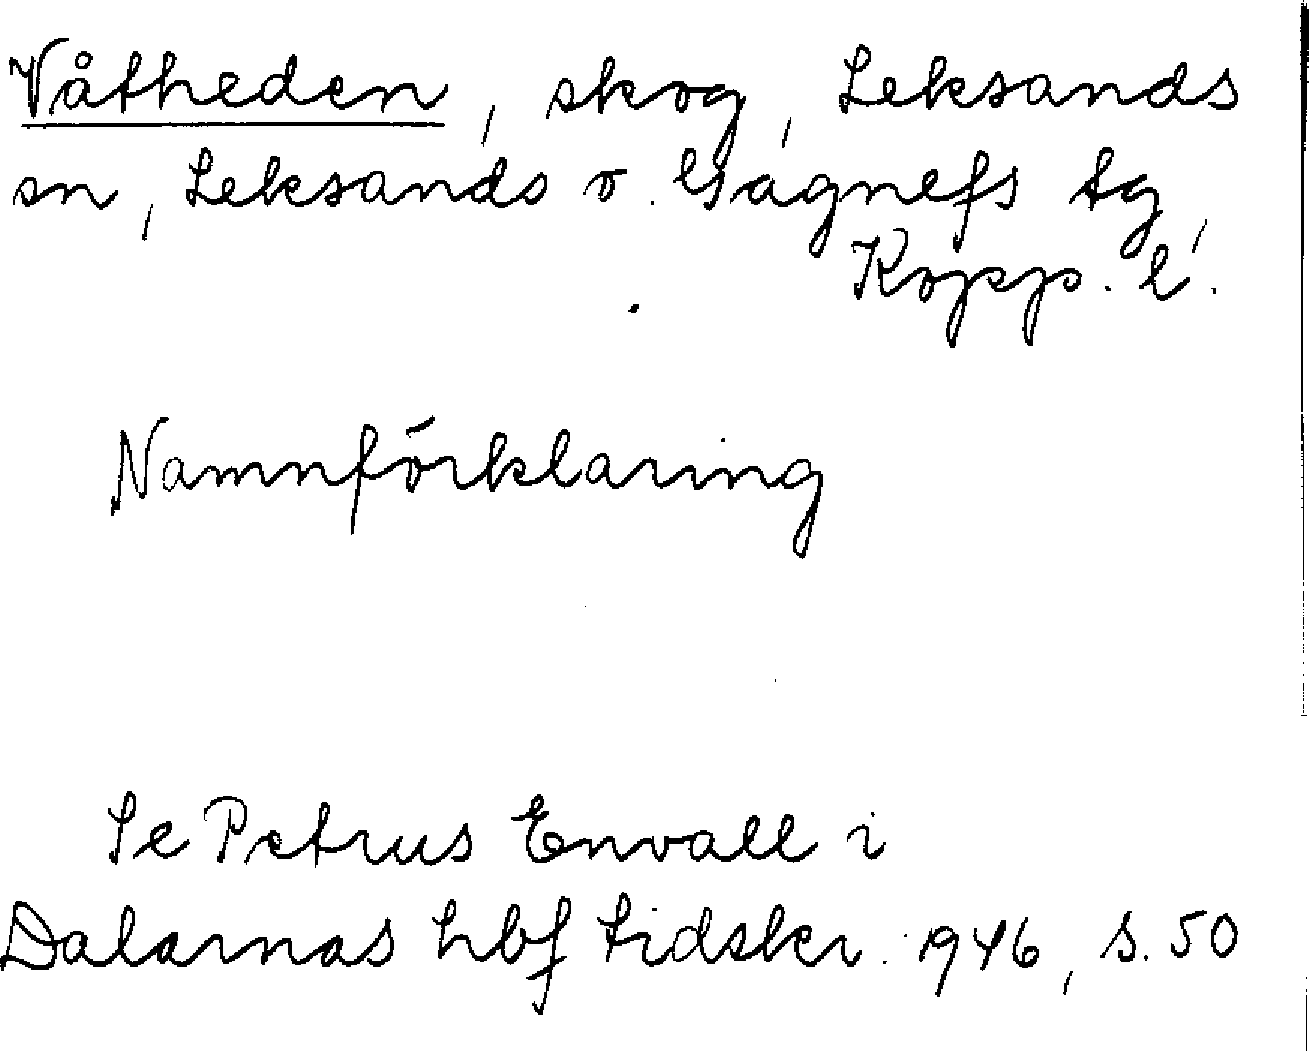 Våtheden, skog, Leksands
sn, Leksands o. Gagnefs tg,
Kopp. l.
Namnförklaring
Se Petrus Envall i
Dalarnas hbf tidskr. 1946, s. 50